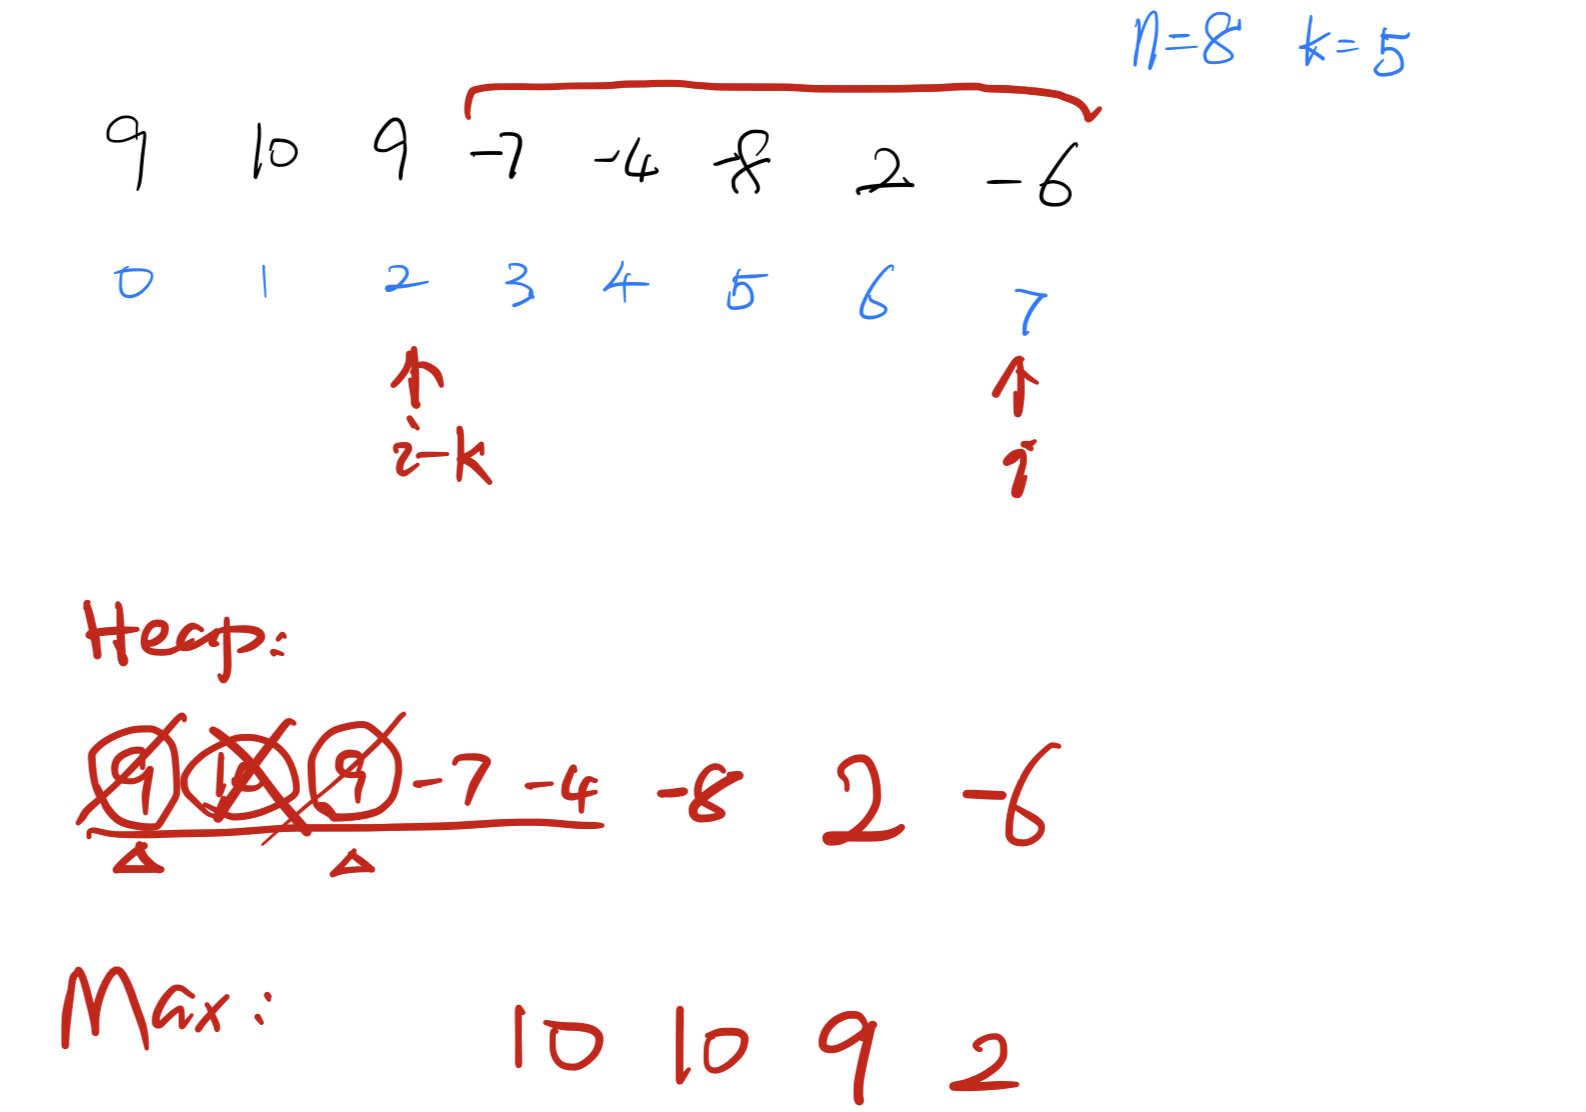 n=8 k=5
9 10 9 -7 -4 -8 2 -6
0 1 2 3 4 5 6 7
i-k i
Heap:
9 10 9 -7 -4 -8 2 -6
Max: 10 10 9 2